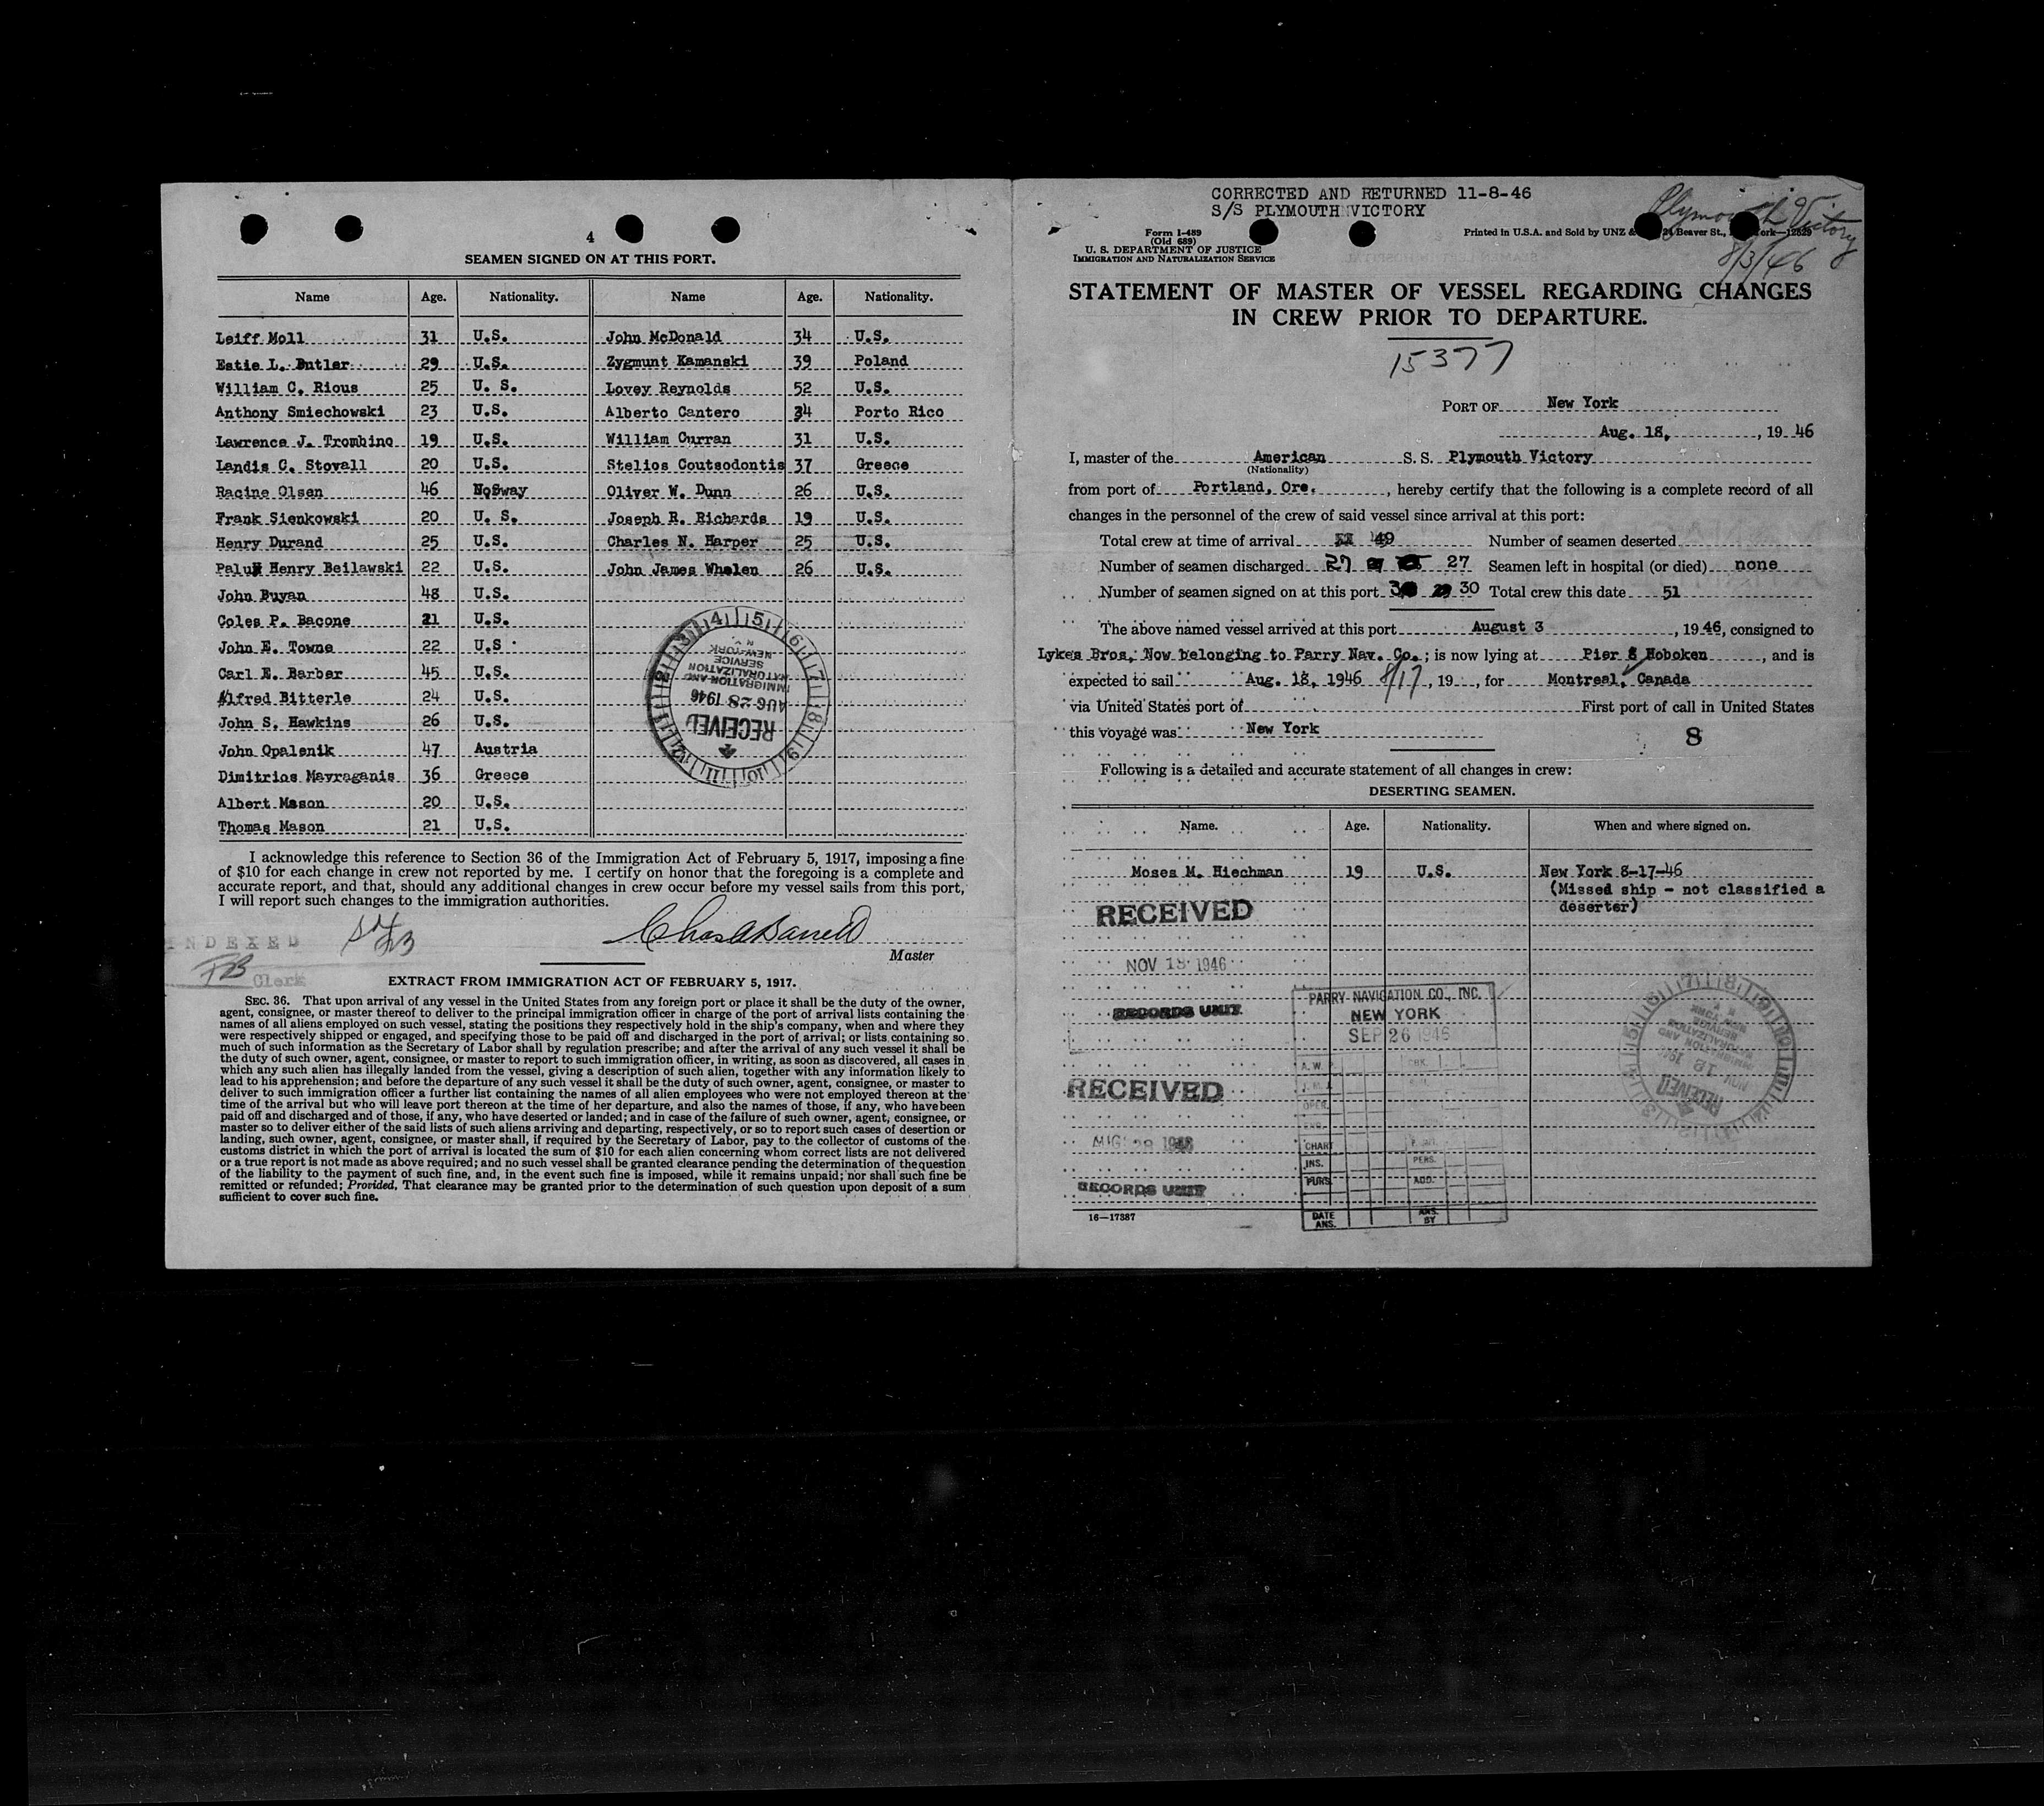 4
SEAMEN SIGNED ON AT THIS PORT.
Name Age. Nationality. Name Age. Nationality.
Leiff Moll 31 U.S. John McDonald 34 U.S.
Estie L. Butler 29 U.S. Zygmunt Kamanski 39 Poland
William C. Rious 25 U. S. Lovey Reynolds 52 U.S.
Anthony Smiechowski 23 U.S. Alberto Cantero 34 Porto Rico
Lawrence J. Trombino 19 U.S. William Curran 31 U.S.
Landis C. Stovall 20 U.S. Stelios Coutsodontis 37 Greece
Racine Olsen 46 Norway Oliver W. Dunn 26 U.S.
Frank Sienkowski 20 U. S. Joseph R. Richards 19 U.S.
Henry Durand 25 U.S. Charles N. Harper 25 U.S.
Henry Beilawski 22 U.S. John James Whelen 26 U.S.
John Buyan 48 U.S.
Coles P. Bacone 21 U.S.
John E. Towne 22 U.S.
Carl E. Barber 45 U.S.
Alfred Bitterle 24 U.S.
John S. Hawkins 26 U.S.
John Opalenik 47 Austria
Dimitrios Mavraganis 36 Greece
Albert Mason 20 U.S.
Thomas Mason 21 U.S.
RECEIVED
AUG 28 1946
IMMIGRATION AND
NATURALIZATION
SERVICE
NEW YORK
N.Y.
I acknowledge this reference to Section 36 of the Immigration Act of February 5, 1917, imposing a fine
of $10 for each change in crew not reported by me. I certify on honor that the foregoing is a complete and
accurate report, and that, should any additional changes in crew occur before my vessel sails from this port,
I will report such changes to the immigration authorities.
INDEXED
Clerk
Chas A Barrett
Master
EXTRACT FROM IMMIGRATION ACT OF FEBRUARY 5, 1917.
SEC. 36. That upon arrival of any vessel in the United States from any foreign port or place it shall be the duty of the owner,
agent, consignee, or master thereof to deliver to the principal immigration officer in charge of the port of arrival lists containing the
names of all aliens employed on such vessel, stating the positions they respectively hold in the ship's company, when and where they
were respectively shipped or engaged, and specifying those to be paid off and discharged in the port of arrival; or lists containing so
much of such information as the Secretary of Labor shall by regulation prescribe; and after the arrival of any such vessel it shall be
the duty of such owner, agent, consignee, or master to report to such immigration officer, in writing, as soon as discovered, all cases in
which any such alien has illegally landed from the vessel, giving a description of such alien, together with any information likely to
lead to his apprehension; and before the departure of any such vessel it shall be the duty of such owner, agent, consignee, or master to
deliver to such immigration officer a further list containing the names of all alien employees who were not employed thereon at the
time of the arrival but who will leave port thereon at the time of her departure, and also the names of those, if any, who have been
paid off and discharged and of those, if any, who have deserted or landed; and in case of the failure of such owner, agent, consignee, or
master so to deliver either of the said lists of such aliens arriving and departing, respectively, or so to report such cases of desertion or
landing, such owner, agent, consignee, or master shall, if required by the Secretary of Labor, pay to the collector of customs of the
customs district in which the port of arrival is located the sum of $10 for each alien concerning whom correct lists are not delivered
or a true report is not made as above required; and no such vessel shall be granted clearance pending the determination of the question
of the liability to the payment of such fine, and, in the event such fine is imposed, while it remains unpaid; nor shall such fine be
remitted or refunded; Provided, That clearance may be granted prior to the determination of such question upon deposit of a sum
sufficient to cover such fine.
CORRECTED AND RETURNED 11-8-46
S/S PLYMOUTH VICTORY
Plymouth Victory
8/3/46
Form I-489
(Old 689)
U. S. DEPARTMENT OF JUSTICE
IMMIGRATION AND NATURALIZATION SERVICE
Printed in U.S.A. and Sold by UNZ & Beaver St.,
STATEMENT OF MASTER OF VESSEL REGARDING CHANGES
IN CREW PRIOR TO DEPARTURE.
15377
PORT OF New York
Aug. 18, , 19 46
I, master of the American S. S. Plymouth Victory
(Nationality)
from port of Portland, Ore. , hereby certify that the following is a complete record of all
changes in the personnel of the crew of said vessel since arrival at this port:
Total crew at time of arrival 49 Number of seamen deserted
Number of seamen discharged 27 27 Seamen left in hospital (or died) none
Number of seamen signed on at this port 30 Total crew this date 51
The above named vessel arrived at this port August 3 , 19 46, consigned to
Lykes Bros. Now belonging to Parry Nav. Co. ; is now lying at Pier 8 Hoboken , and is
expected to sail Aug. 18, 1946 8/17 , 19 , for Montreal, Canada
via United States port of First port of call in United States
this voyage was: New York
8
Following is a detailed and accurate statement of all changes in crew:
DESERTING SEAMEN.
Name. Age. Nationality. When and where signed on.
Moses M. Hiechman 19 U.S. New York 8-17-46
(Missed ship - not classified a
deserter)
RECEIVED
NOV 18 1946
RECORDS UNIT
PARRY NAVIGATION CO., INC.
NEW YORK
SEP 26 1946
A. W.
OPER.
CHART
INS. PERS.
PURS. ADD.
DATE ANS. ANS. BY
RECEIVED
AUG 28 1946
RECORDS UNIT
RECEIVED
NOV 18 1946
IMMIGRATION AND
NATURALIZATION
SERVICE
NEW YORK
16—17387